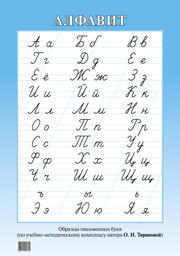 АЛФАВИТ
А а Б б В в
Г г Д д Е е
Ё ё Ж ж З з
И и Й й К к
Л л М м Н н
О о П п Р р
С с Т т У у
Ф ф Х х Ц ц
Ч ч Ш ш Щ щ
ъ ы ь
Э э Ю ю Я я
Образцы письменных букв
(по учебно-методическому комплексу автора О. И. Тириновой)